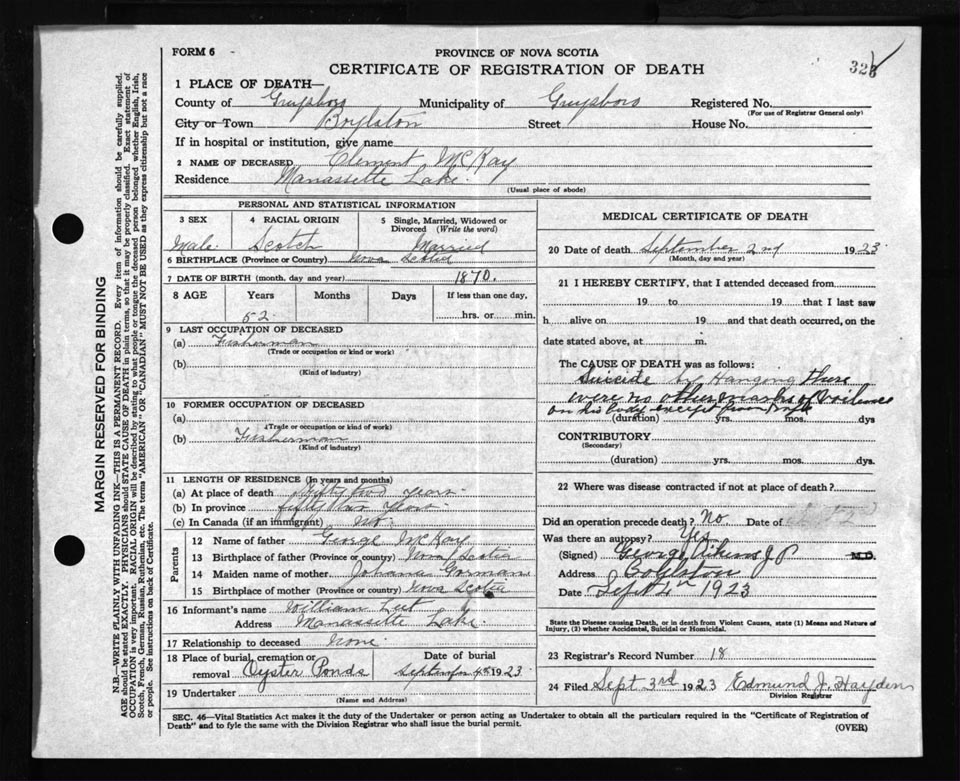 FORM 6
PROVINCE OF NOVA SCOTIA
CERTIFICATE OF REGISTRATION OF DEATH
MARGIN RESERVED FOR BINDING
N.B.—WRITE PLAINLY WITH UNFADING INK—THIS IS A PERMANENT RECORD. Every item of information should be carefully supplied.
AGE should be stated EXACTLY. PHYSICIANS should STATE CAUSE OF DEATH in plain terms, so that it may be properly classified. Exact statement of
OCCUPATION is very important. RACIAL ORIGIN will be described by stating to what people or tongue the deceased person belonged whether English, Irish,
Scotch, French, German, Russian, Ruthenian, etc. The terms "AMERICAN" OR "CANADIAN" MUST NOT BE USED as they express citizenship but not a race
or people. See instructions on back of Certificate.
1 PLACE OF DEATH—
County of Guysboro Municipality of Guysboro Registered No.
(For use of Registrar General only)
City or Town Boylston Street House No.
If in hospital or institution, give name
2 NAME OF DECEASED Clement McKay
Residence Manassette Lake.
(Usual place of abode)
PERSONAL AND STATISTICAL INFORMATION
3 SEX 4 RACIAL ORIGIN 5 Single, Married, Widowed or Divorced (Write the word)
Male. Scotch Married
6 BIRTHPLACE (Province or Country) Nova Scotia
7 DATE OF BIRTH (month, day and year) 1870.
8 AGE Years Months Days If less than one day,
52. hrs. or min.
9 LAST OCCUPATION OF DECEASED
(a) Fisherman
(Trade or occupation or kind or work)
(b)
(Kind of industry)
10 FORMER OCCUPATION OF DECEASED
(a)
(Trade or occupation or kind or work)
(b) Fisherman
(Kind of industry)
11 LENGTH OF RESIDENCE (In years and months)
(a) At place of death fifty two years.
(b) In province fifty two years.
(c) In Canada (if an immigrant)
Parents
12 Name of father George McKay
13 Birthplace of father (Province or country) Nova Scotia
14 Maiden name of mother Johana Gorman
15 Birthplace of mother (Province or country) Nova Scotia
16 Informant's name William
Address Manassette Lake.
17 Relationship to deceased None.
18 Place of burial, cremation or removal Oyster Ponds Date of burial September 4th 1923
19 Undertaker
(Name and Address)
MEDICAL CERTIFICATE OF DEATH
20 Date of death September 2nd 1923
(Month, day and year)
21 I HEREBY CERTIFY, that I attended deceased from
19 to 19 that I last saw
h alive on 19 and that death occurred, on the
date stated above, at m.
The CAUSE OF DEATH was as follows:
Suicide by Hanging there
were no other marks of violence
on his body except from
(duration) yrs. mos. dys
CONTRIBUTORY
(Secondary)
(duration) yrs. mos. dys.
22 Where was disease contracted if not at place of death?
Did an operation precede death? No. Date of
Was there an autopsy? Yes
(Signed) George Aikens J P M.D.
Address Boylston
Date Sept 4th 1923
State the Disease causing Death, or in death from Violent Causes, state (1) Means and Nature of
Injury, (2) whether Accidental, Suicidal or Homicidal.
23 Registrar's Record Number 18
24 Filed Sept 3rd 1923 Edmund J. Hayden
Division Registrar
SEC. 46—Vital Statistics Act makes it the duty of the Undertaker or person acting as Undertaker to obtain all the particulars required in the "Certificate of Registration of
Death" and to fyle the same with the Division Registrar who shall issue the burial permit.
(OVER)